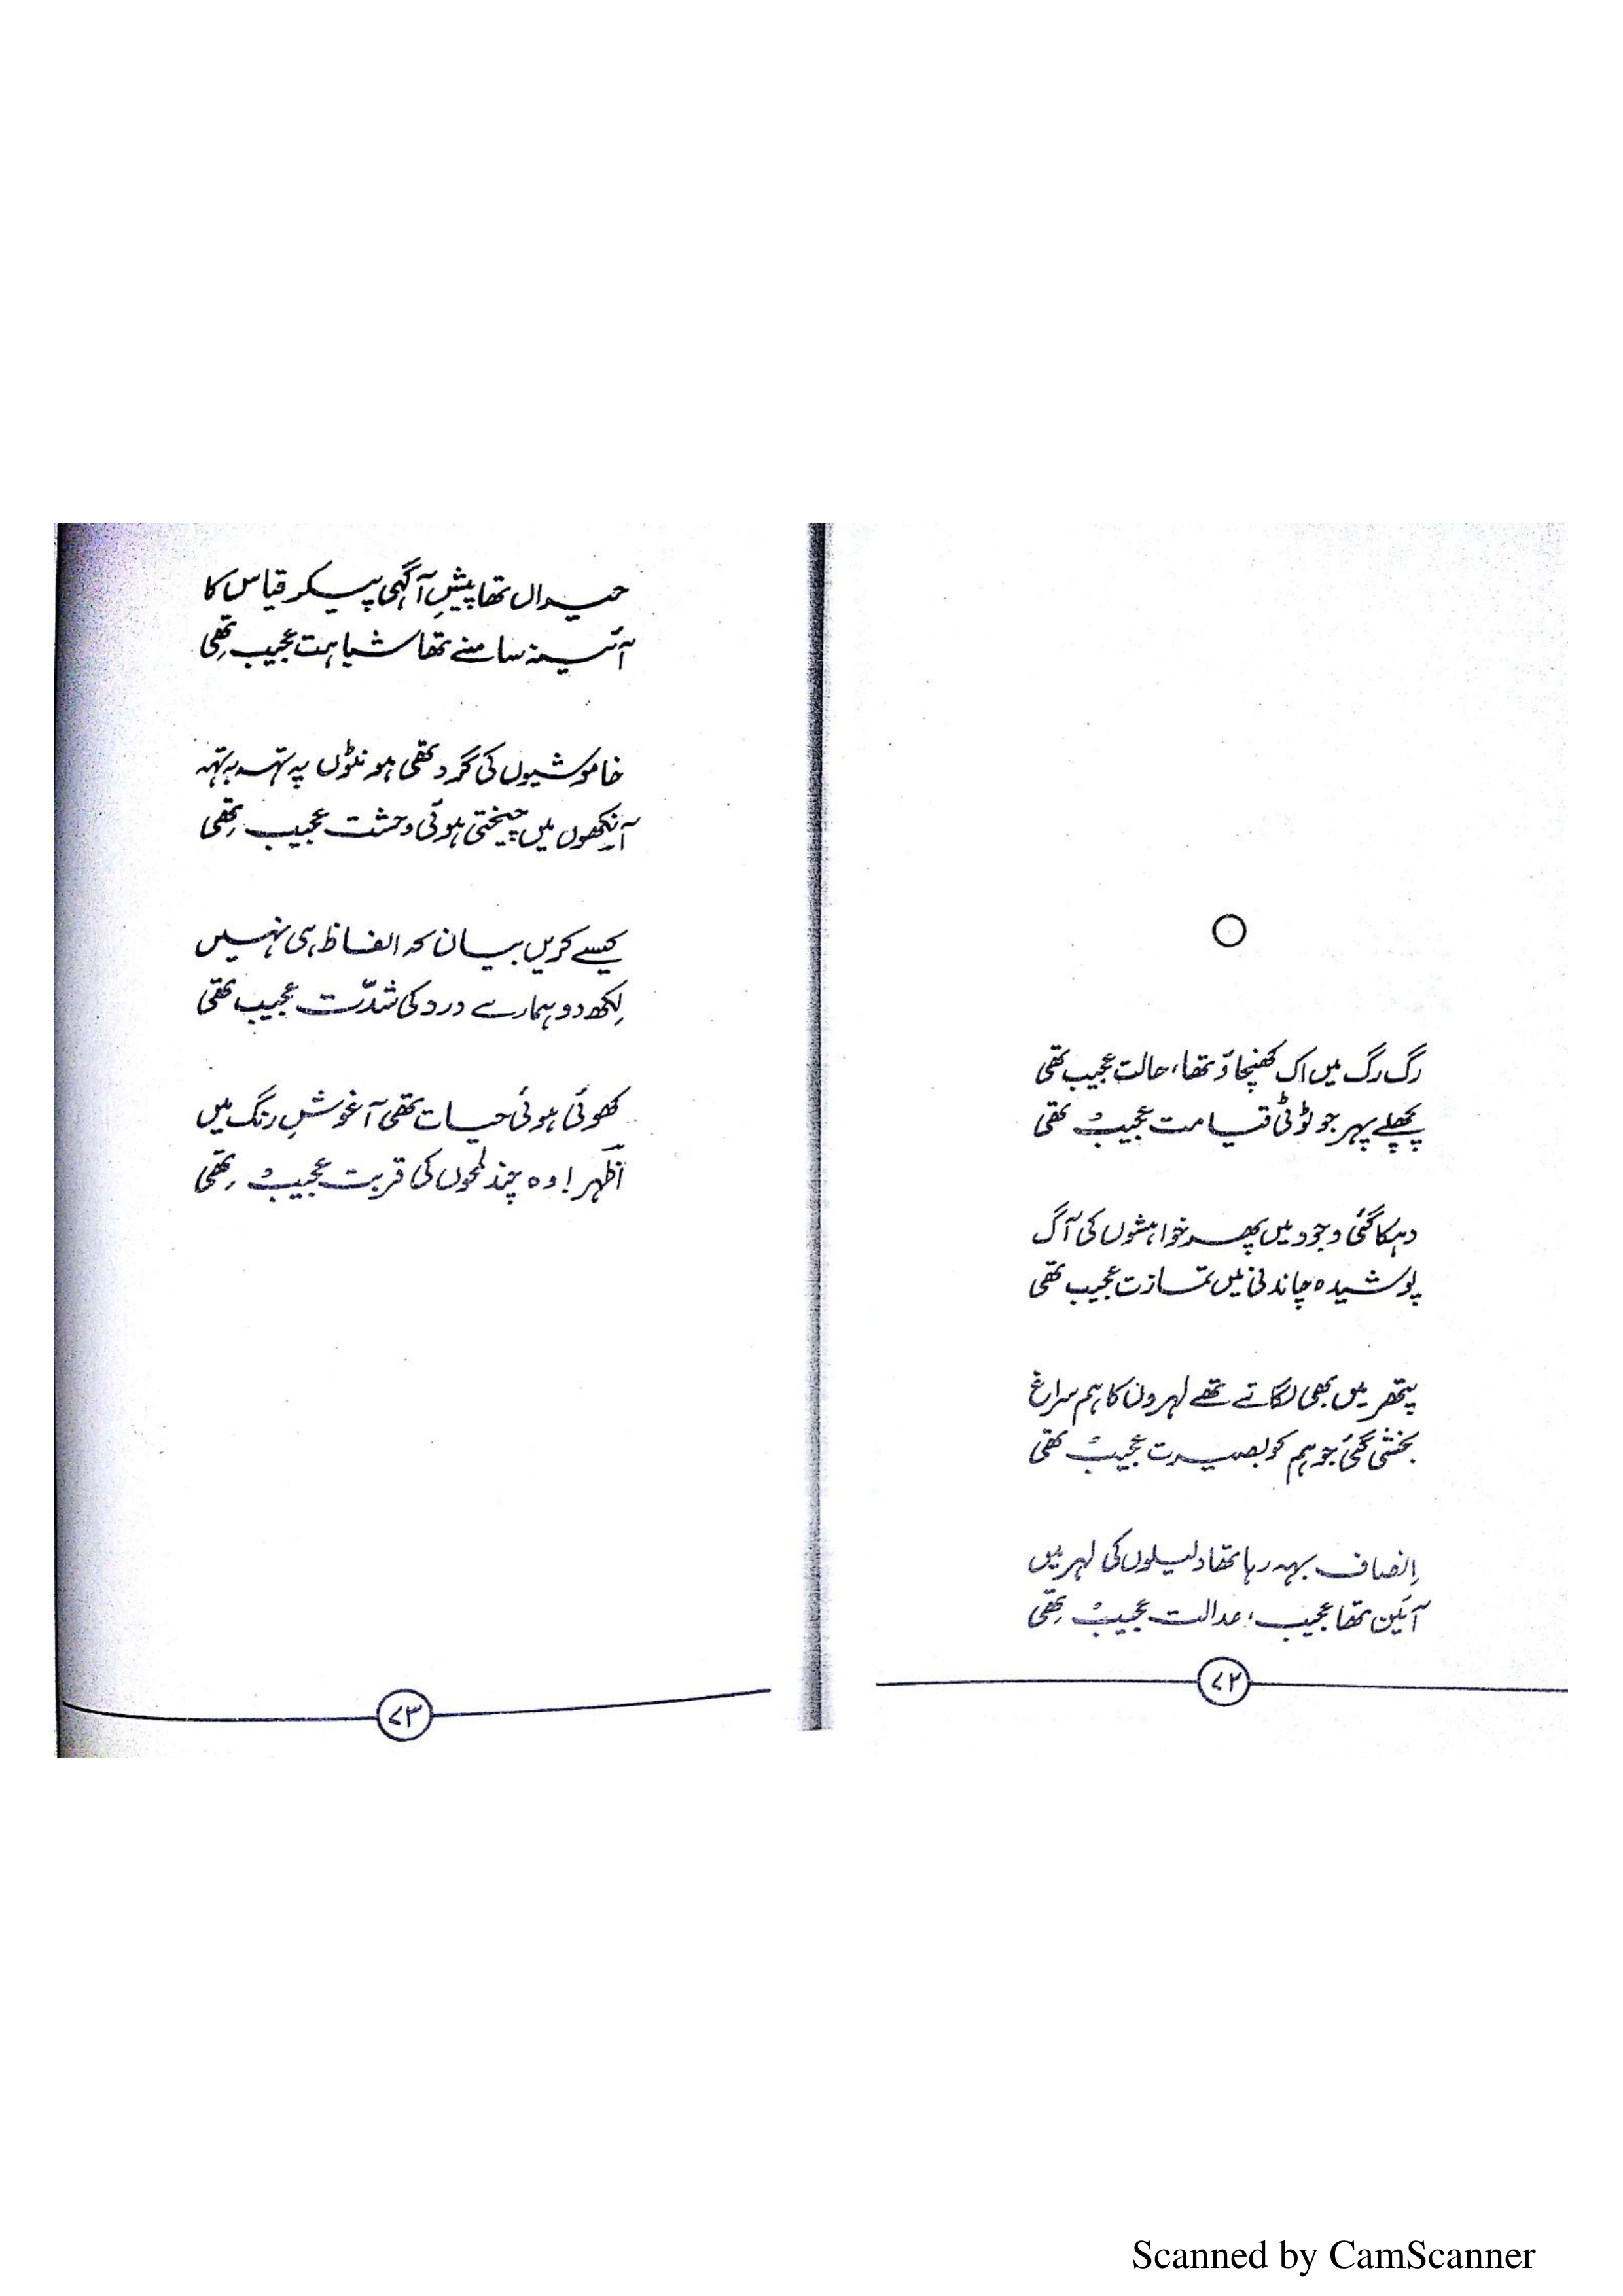 رگ رگ میں اک کھنچاؤ تھا، حالت عجیب تھی
پچھلے پہر جو ٹوٹی قیامت عجیب تھی
دہکا گئی وجود میں پھر خواہشوں کی آگ
پوشیدہ چاندنی میں تمازت عجیب تھی
پتھر میں بھی لگاتے تھے لہروں کا ہم سراغ
بخشی گئی جو ہم کو بصیرت عجیب تھی
اِنصاف بہہ رہا تھا دلیلوں کی لہر میں
آئین تھا عجیب، عدالت عجیب تھی
۷۲
حیراں تھا پیشِ آگہی پیکر قیاس کا
آئینہ سامنے تھا شباہت عجیب تھی
خاموشیوں کی گرد تھی ہونٹوں پہ تہہ بہ تہہ
آنکھوں میں چیختی ہوئی وحشت عجیب تھی
کیسے کریں بیان کہ الفاظ ہی نہیں
لِکھ دو ہمارے درد کی شدّت عجیب تھی
کھوئی ہوئی حیات تھی آغوشِ رنگ میں
اظہر! وہ چند لمحوں کی قربت عجیب تھی
۷۳
Scanned by CamScanner